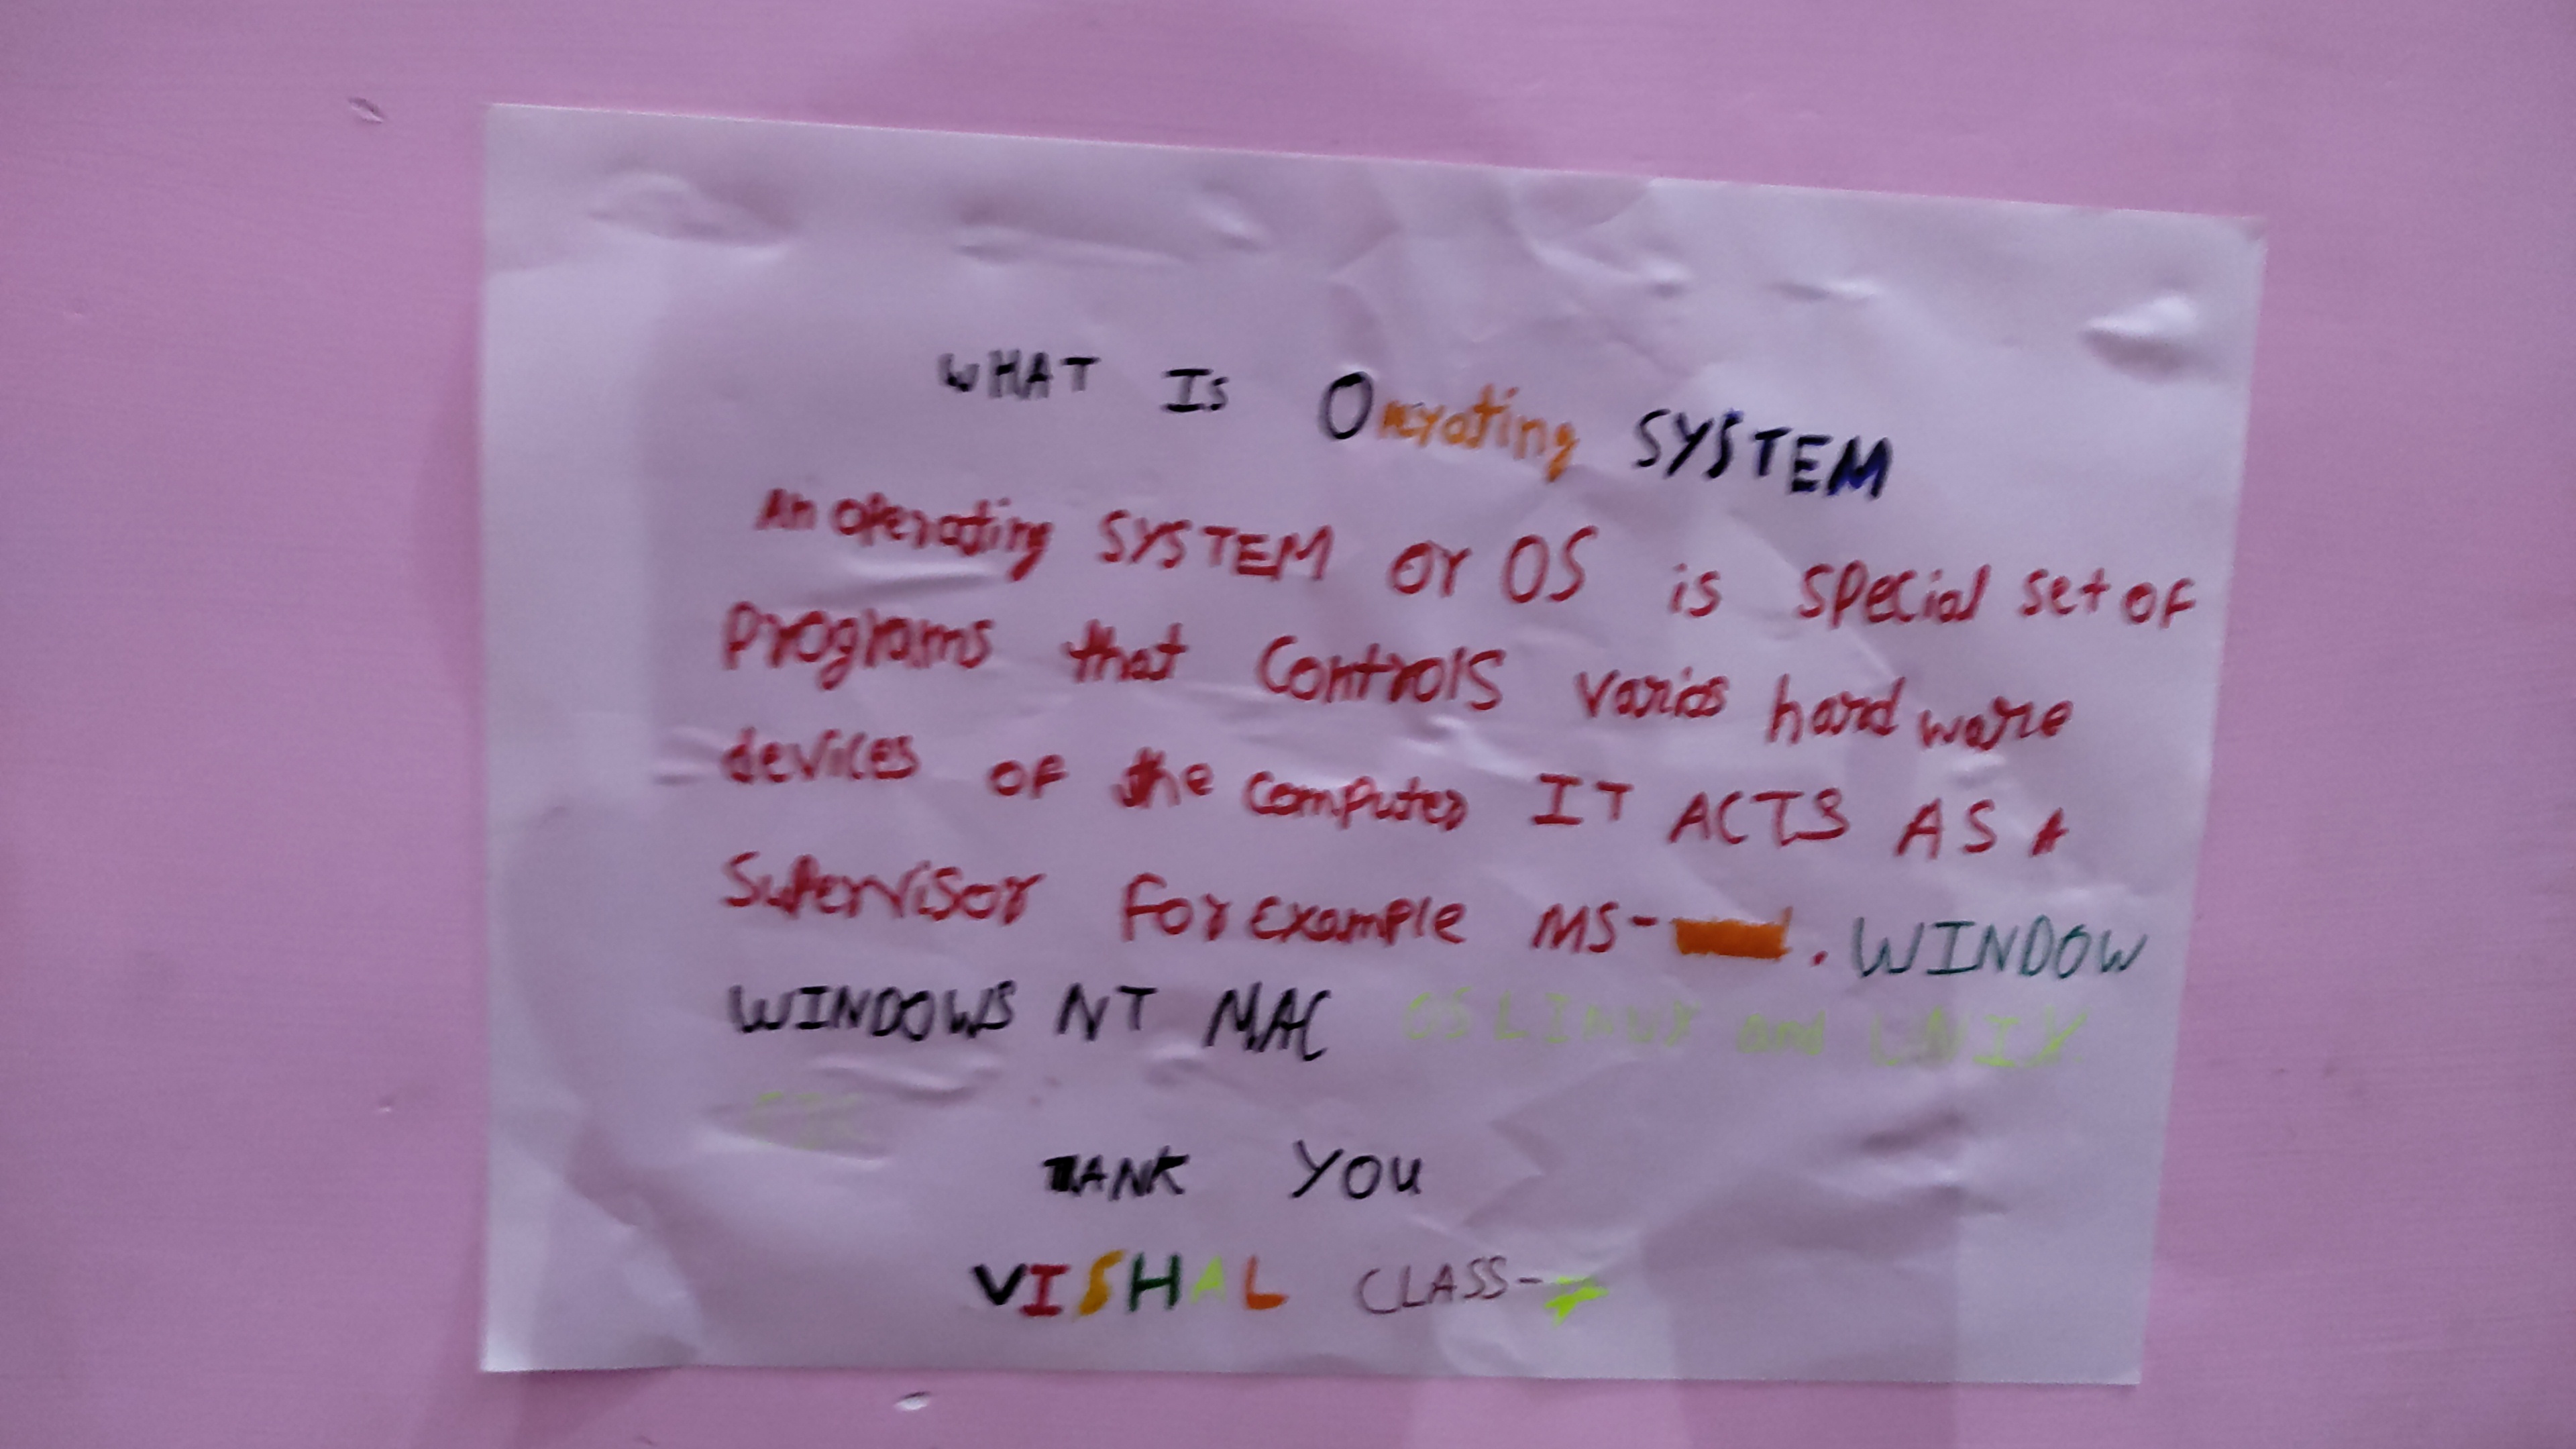 WHAT IS Operating SYSTEM
An operating SYSTEM or OS is special set of
Programs that Controls varios hard ware
devices of the computer IT ACTS AS A
Supervisor For example MS- . WINDOW
WINDOWS NT MAC OS LINUX and UNIX
TANK YOU
VISHAL CLASS-7